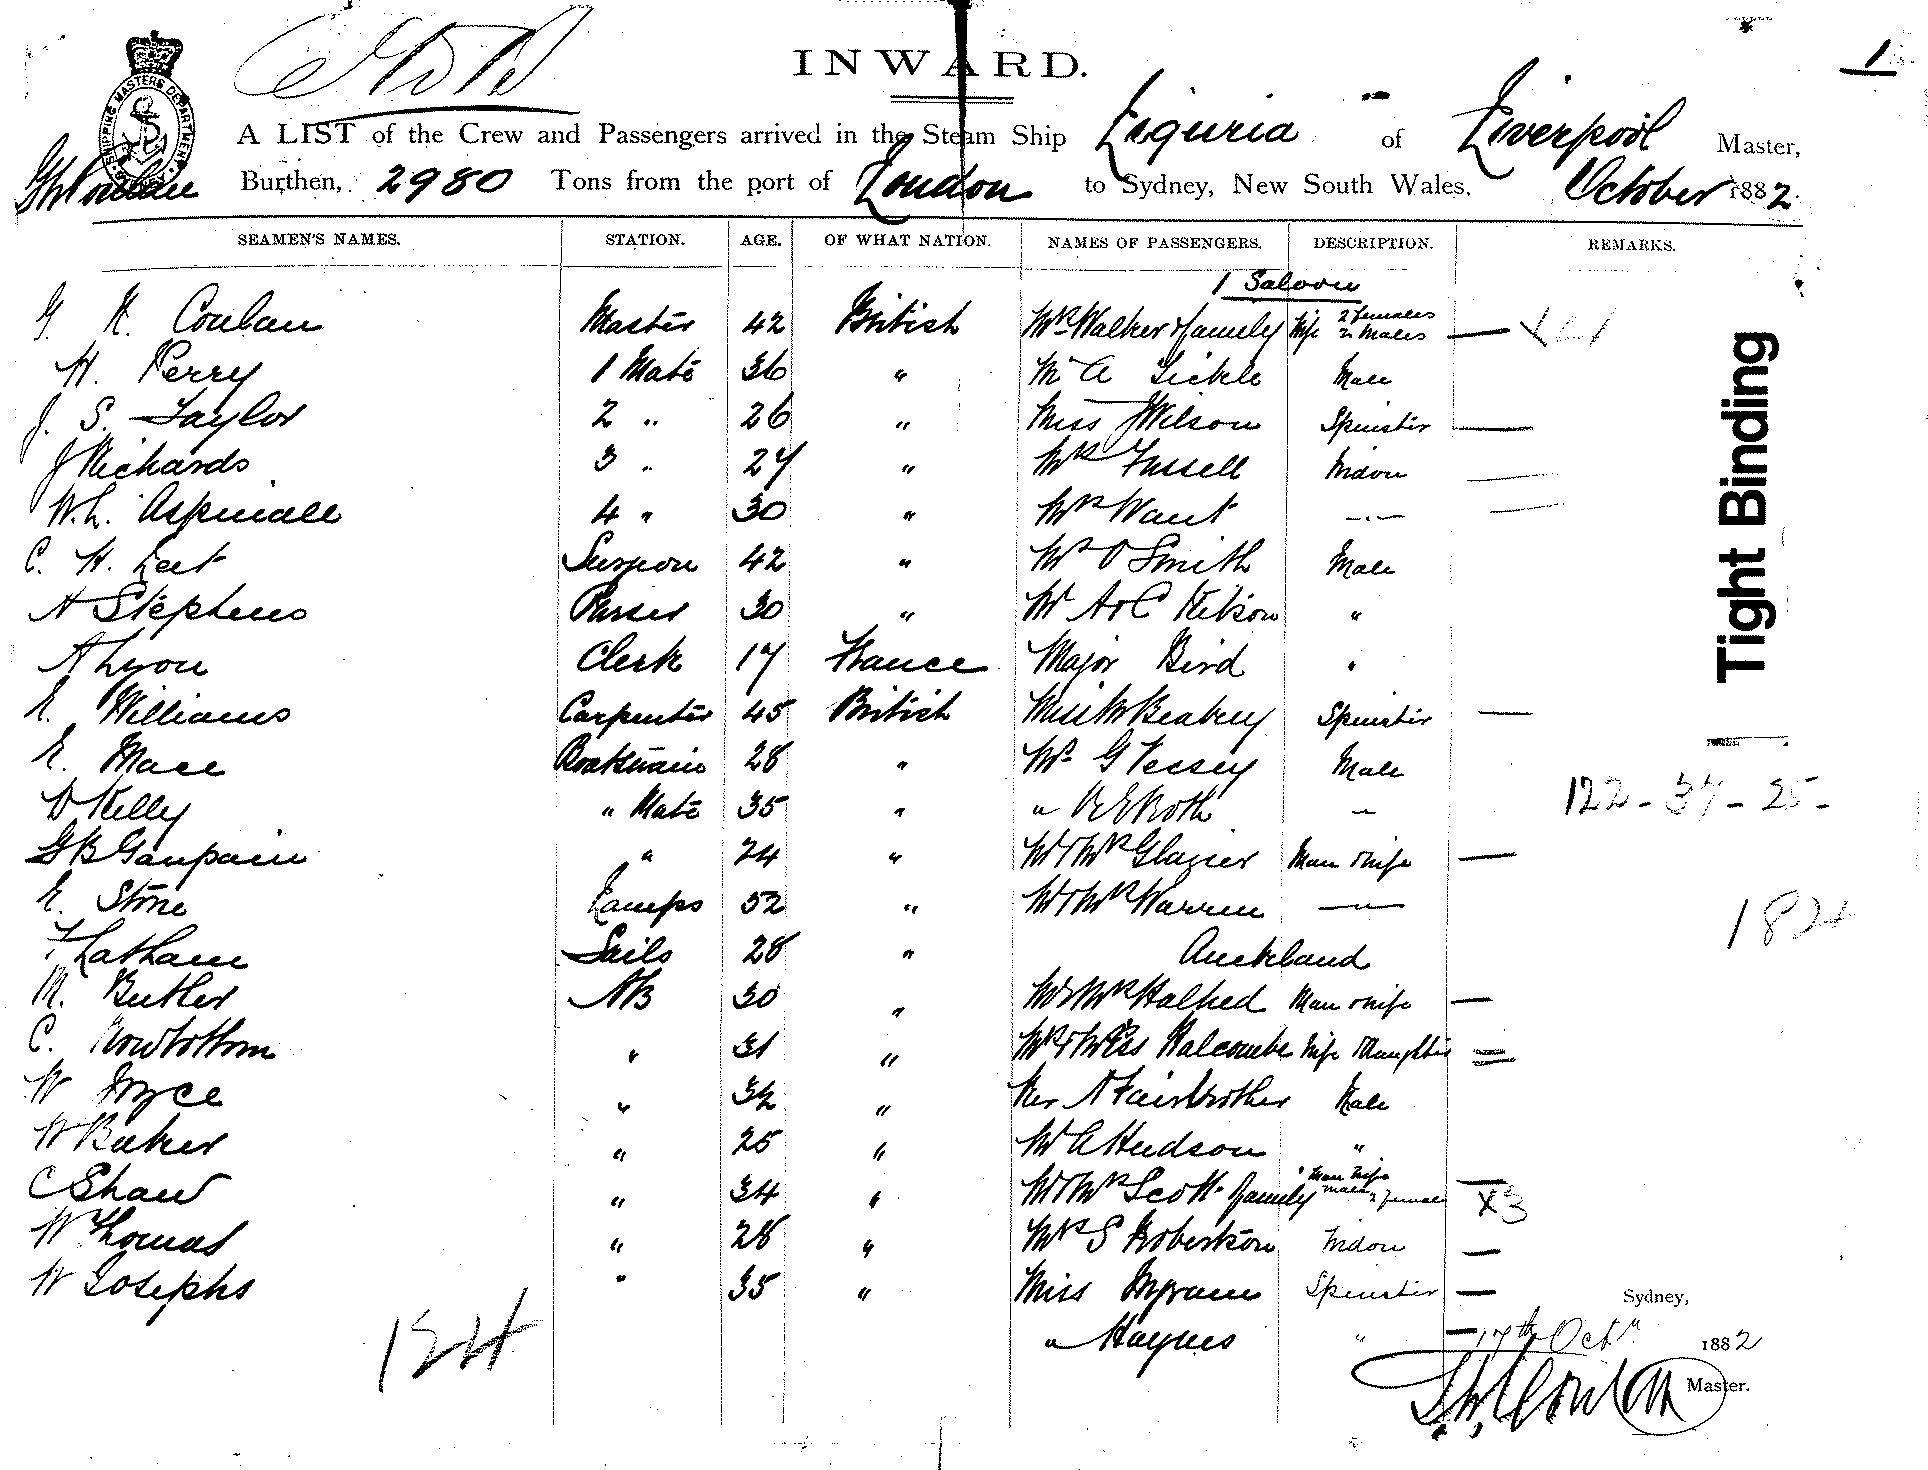 INWARD.
1
SHIPPING MASTERS DEPARTMENT
A LIST of the Crew and Passengers arrived in the Steam Ship Liguria of Liverpool Master,
Burthen, 2980 Tons from the port of London to Sydney, New South Wales. October 1882.
SEAMEN'S NAMES. STATION. AGE. OF WHAT NATION. NAMES OF PASSENGERS. DESCRIPTION. REMARKS.
1 Saloon
Master 42 British Mrs Walker & family Wife 2 females 2 Males
H. Perry 1 Mate 36 " Mr A Sickle Male
J. S. Taylor 2 " 26 " Miss J Wilson Spinster
J Richards 3 " 27 " Mrs Fussell Widow
W. L. Aspinall 4 " 30 " Mrs Want —"—
C. H. Leet Surgeon 42 " Mr O Smith Male
H Stephens Purser 30 " Mr A & C Kitson "
A Lyon Clerk 17 France Major Bird "
E. Williams Carpenter 45 British Miss M Spinster
E. Mace Boatswain 28 " Mr G Vessey Male
D Kelly " Mate 35 " " Roth "
122 - 37 - 25 -
" 24 " Mr & Mrs Glazier Man & wife
E. Stone Lamps 52 " Mr & Mrs Warren —"—
182
F Latham Sails 28 " Auckland
Butler AB 30 " Mr & Mrs Halked Man & wife
C. Rowbottom " 31 " Mrs & Miss Halcombe Wife & daughter
W Joyce " 32 " Rev A Fairbrother Male
W Baker " 25 " Mr A Hudson "
C Shaw " 34 " Mr & Mrs Scott & family Man Wife 1 male 2 female X3
W Thomas " 28 " Mrs S Robertson Widow
W Josephs " 35 " Miss Ingram Spinster
" Haynes "
124
Sydney,
17th Octr 1882
Master.
Tight Binding